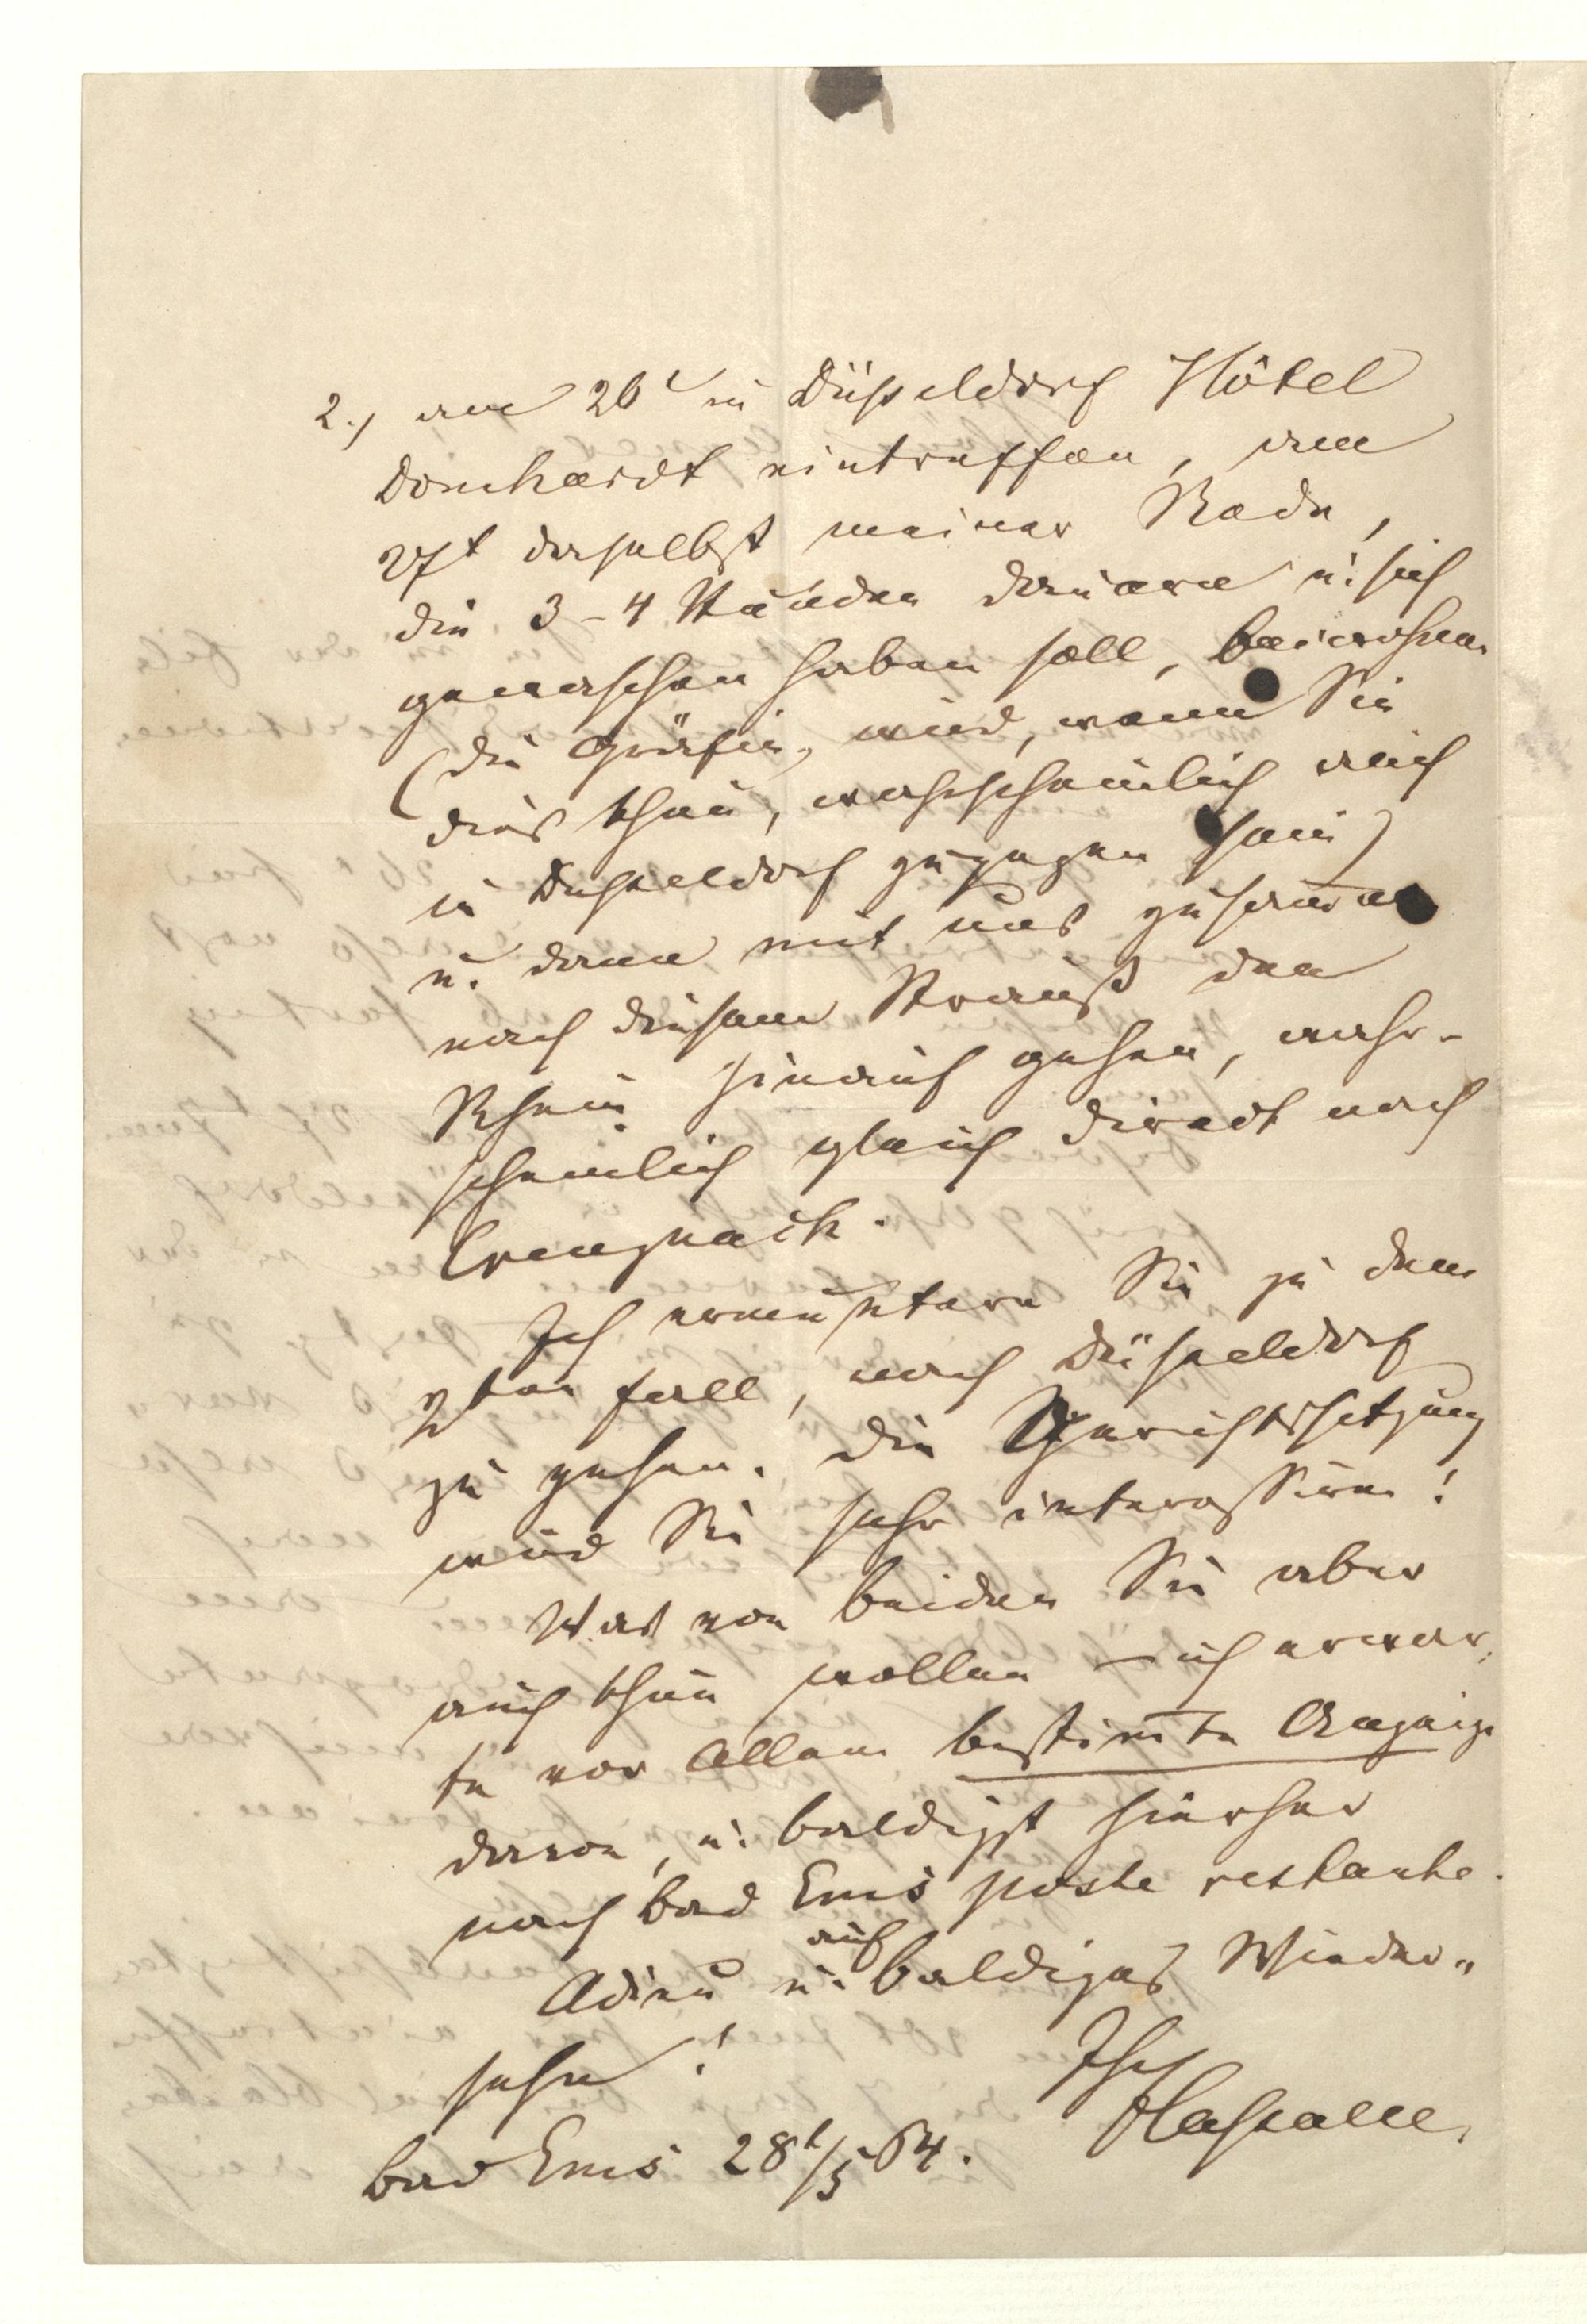 2.) am 26t in Düsseldorf Hôtel
Domhardt eintreffen, am
27t daselbst meiner Rede,
die 3-4 Stunden dauern u. sich
gewaschen haben soll, beiwohnen
(die Gräfin, wird, wenn Sie
dies thun, wahrscheinlich auch
in Düsseldorf zugegen sein)
u. dann mit uns zusammen
nach diesem Strauß den
Rhein hinauf gehen, wahr-
scheinlich gleich direct nach
Creuznach.
Ich ermuntere Sie zu dem
2ten Fall, nach Düsseldorf
zu gehen. Die Gerichtssitzung
wird Sie sehr interessiren!
Was von beiden Sie aber
auch thun wollen – ich erwar-
te vor Allem bestimmte Anzeige
davon, u. baldigst hierher
nach Bad Ems poste restante.
Adieu u. auf baldiges Wieder-
sehn!
Ihr
FLassalle
Bad Ems 28t/5 64.